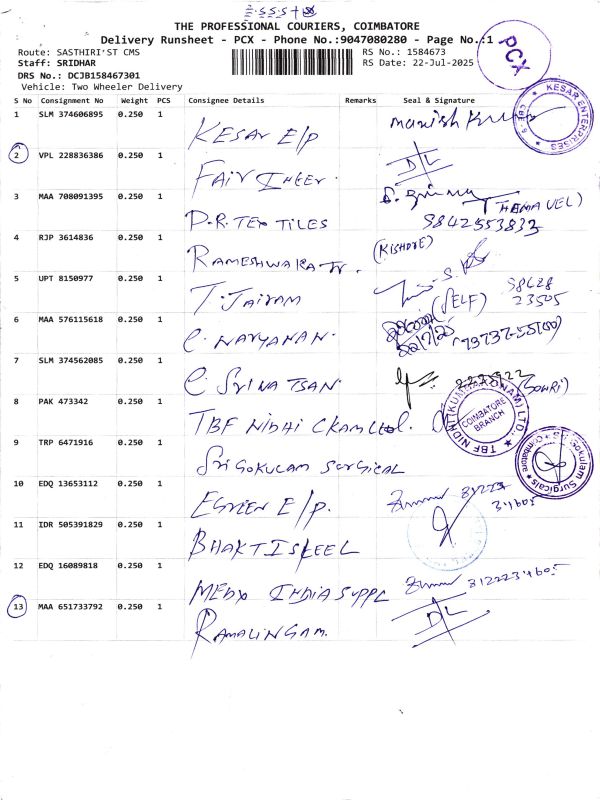 THE PROFESSIONAL COURIERS, COIMBATORE
Delivery Runsheet - PCX - Phone No.:9047080280 - Page No.:1
Route: SASTHIRI'ST CMS
RS No.: 1584673
Staff: SRIDHAR
RS Date: 22-Jul-2025
DRS No.: DCJB158467301
Vehicle: Two Wheeler Delivery
PCX
S No Consignment No Weight PCS Consignee Details Remarks Seal & Signature
1 SLM 374606895 0.250 1 KESAR E/P
KESAR ENTERPRISES CBE
2 VPL 228836386 0.250 1 FAIR INTER. DL
3 MAA 708091395 0.250 1 P.R. TEX TILES
9842553833
4 RJP 3614836 0.250 1 RAMESHWARA Tr. (KISHORE)
5 UPT 8150977 0.250 1 T. JAIRAM
(SELF)
6 MAA 576115618 0.250 1 C. NARYANAN.
7 SLM 374562085 0.250 1 C. SRINATSAN. (GOWRI)
8 PAK 473342 0.250 1 TBF NIDHI
TBF NIDHI (KUMBAKONAM) LTD., COIMBATORE BRANCH
9 TRP 6471916 0.250 1 SRI GOKULAM SURGICAL
Sri Gokulam Surgicals Coimbatore
10 EDQ 13653112 0.250 1 EGREEN E/P.
11 IDR 505391829 0.250 1 BHAKTI STEEL
12 EDQ 16089818 0.250 1 MEDX INDIA SUPPL
13 MAA 651733792 0.250 1 RAMALINGAM. DL